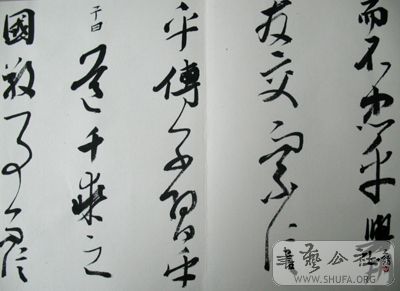 而不忠乎與朋
友交而不信
乎傳不習乎
子曰道千乘之
國敬事而信
書藝公社
WWW.SHUFA.ORG